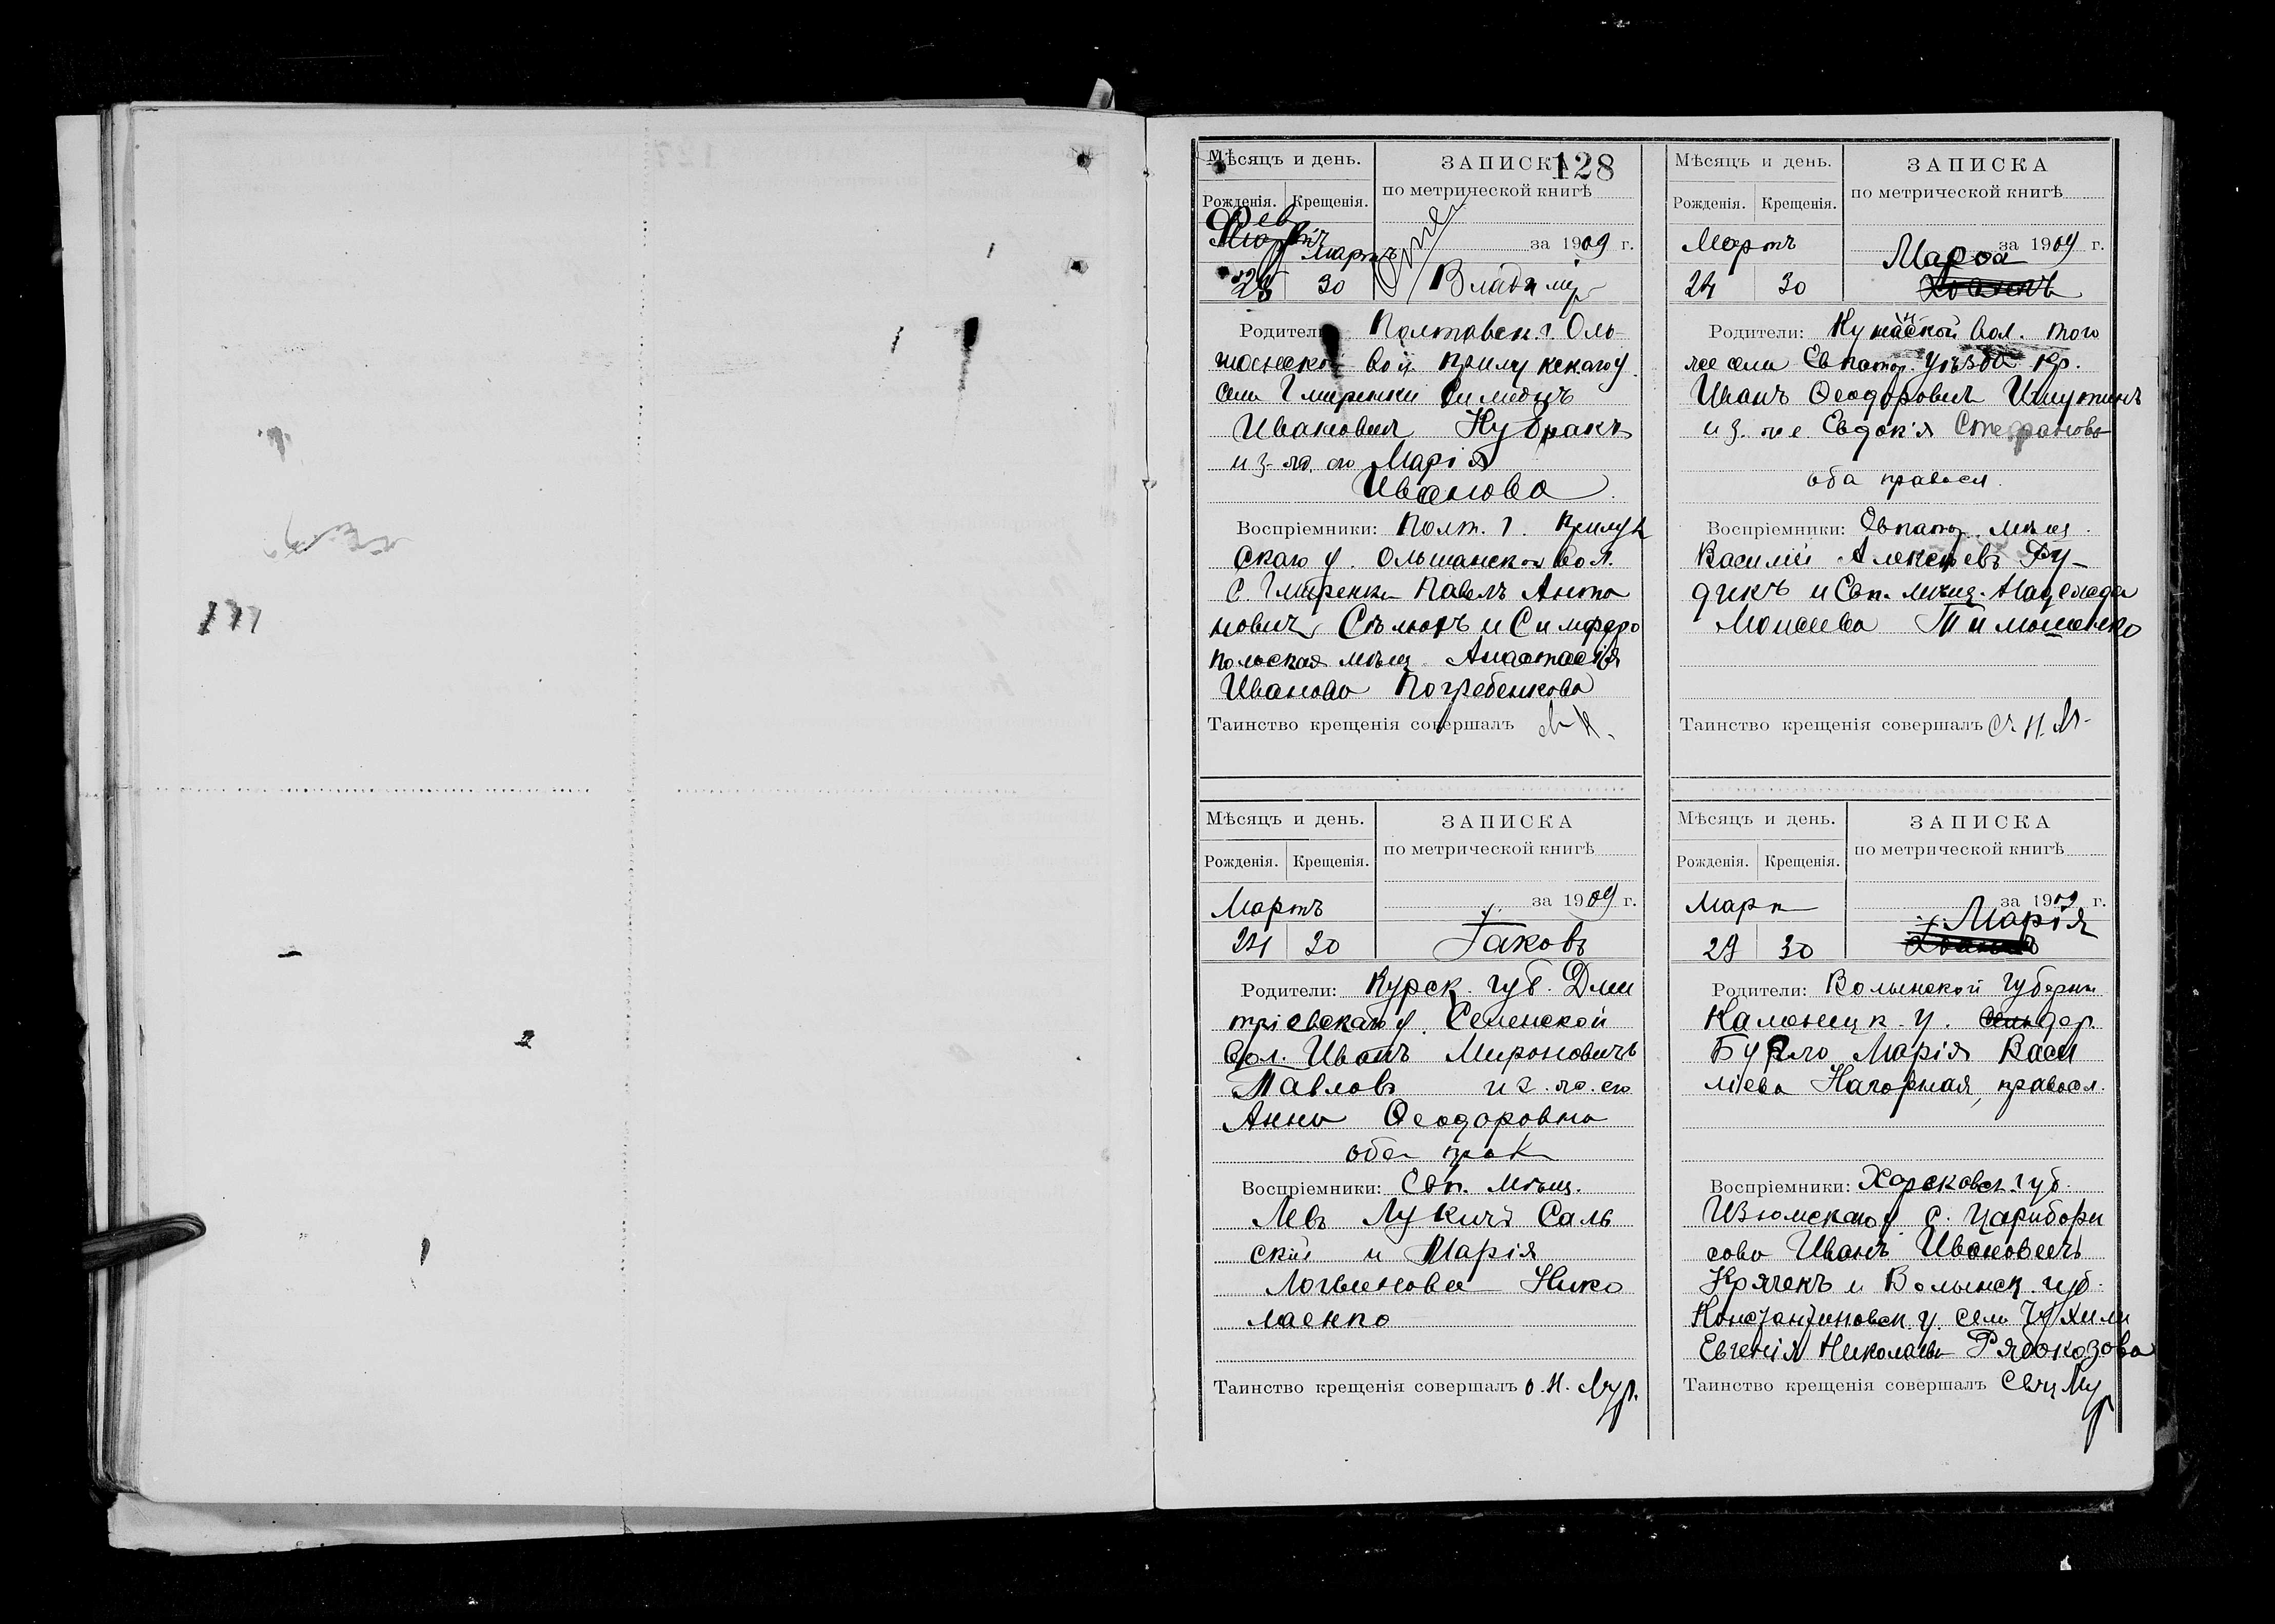 128
Мѣсяцъ и день.
ЗАПИСКА
Рожденія. Крещенія.
по метрической книгѣ
Фев
Мартъ
за 1909 г.
28 30
Владимір
Родители: Полтавск. г. Оль-
шанской вол. Прилукскаго у.
села Гмиренки
Ивановичъ Кубракъ
и з. ж. его Марія
Иванова
Воспріемники: Полт. г. Прилук
скаго у. Ольшанской вол.
с. Гмиренки Павелъ Анто
новичъ и Симферо
польская мѣщ. Анастасія
Иванова Погребенкова
Таинство крещенія совершалъ
Мѣсяцъ и день.
ЗАПИСКА
Рожденія. Крещенія.
по метрической книгѣ
Мартъ
за 1909 г.
24 30
Марѳа
Родители: вол. того
же села Евпатор. уѣзда кр.
Иванъ Ѳеодоровичъ Ишутинъ
и з. ж. е. Евдокія Стефанова
оба правосл.
Воспріемники: Евпатор. мѣщ.
Василій Алексѣевъ Ду-
дикъ и Евп. мѣщ. Надежда
Моисеева Тимошенко
Таинство крещенія совершалъ с. Н. М.
Мѣсяцъ и день.
ЗАПИСКА
Рожденія. Крещенія.
по метрической книгѣ
Мартъ
за 1909 г.
24 30
Іаковъ
Родители: Курск. губ. Дми
тріевскаго у. Селенской
вол. Иванъ Мироновичъ
Павловъ и з. ж. его
Анна Ѳеодоровна
оба прав
Воспріемники: Евп. мѣщ.
Левъ Лукичъ Саль
скій и Марія
Логвинова Нико
лаенко
Таинство крещенія совершалъ с. Н. Мур.
Мѣсяцъ и день.
ЗАПИСКА
Рожденія. Крещенія.
по метрической книгѣ
Март
за 1909 г.
29 30
Марія
Родители: Волынской губерніи
Каменецк. у. дер.
Марія Васи
ліева Нагорная, правосл.
Воспріемники: Харьковск. губ.
Изюмскаго у. с. Царибори
сова Иванъ Ивановичъ
Крячекъ и Волынск. губ.
Константиновск. у. села
Евгенія Николаева Рябокозова
Таинство крещенія совершалъ Свящ Мур